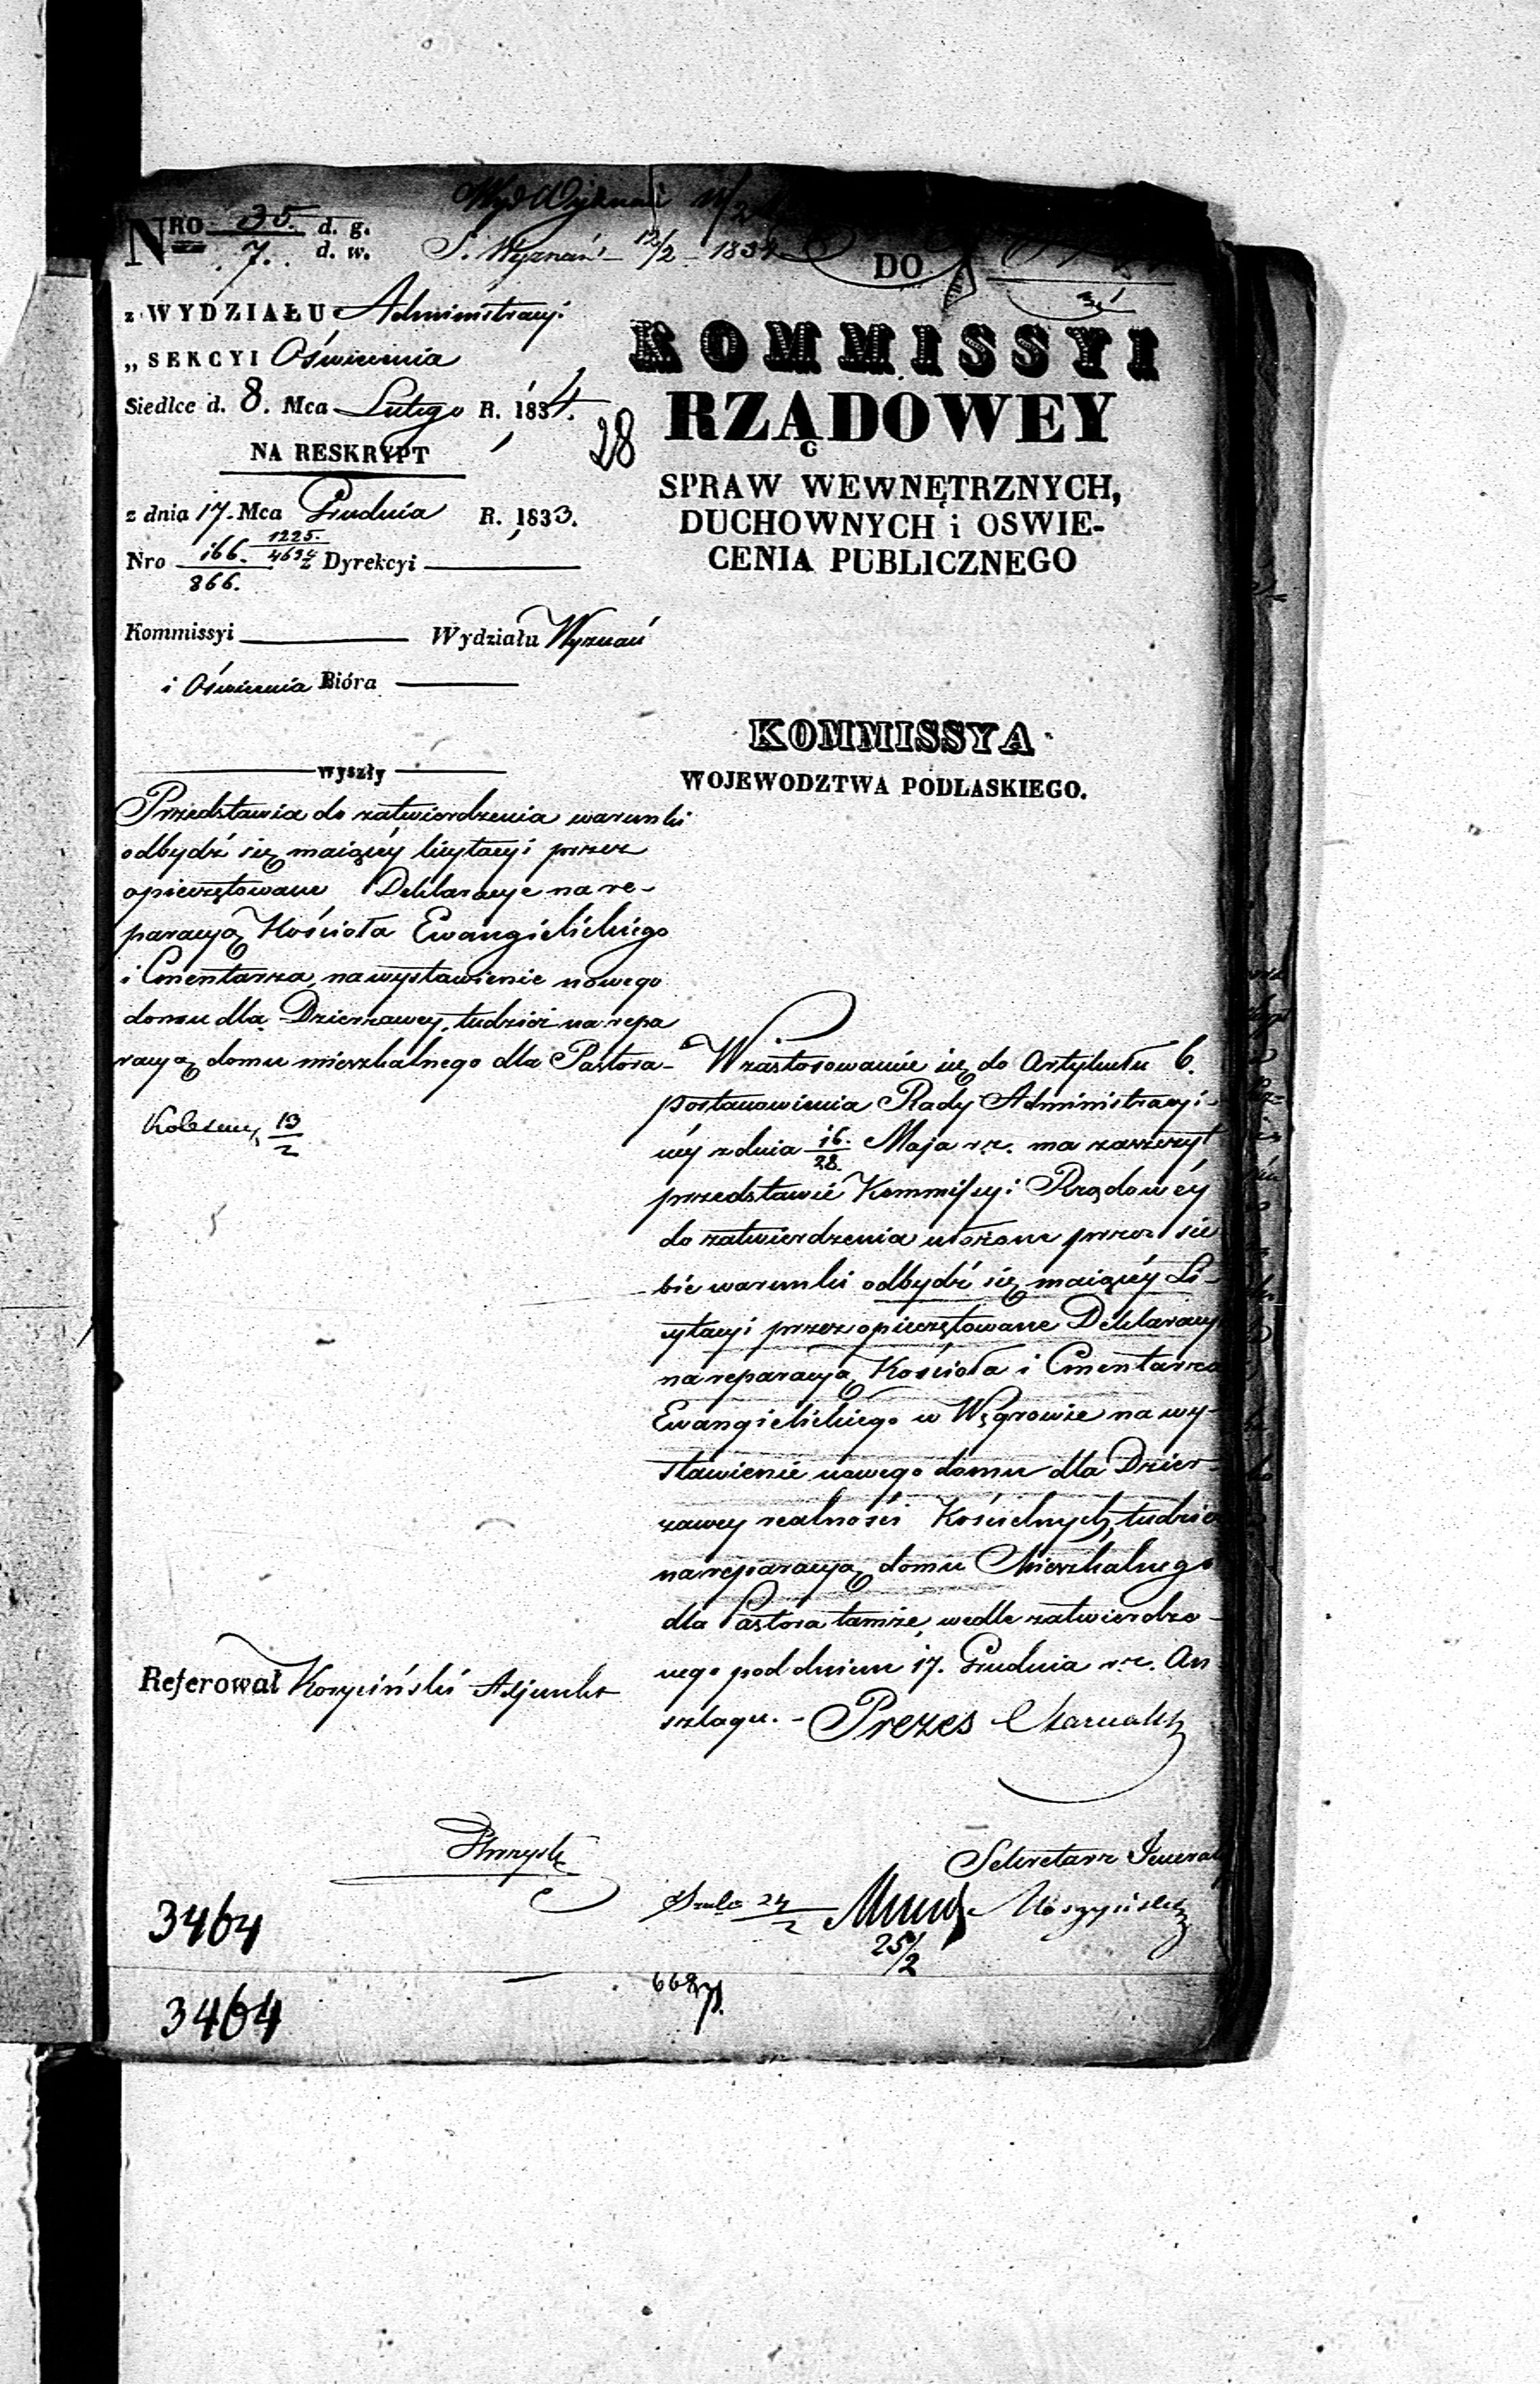 Wyd Wyznań 11/2
NRO 35. d. g.
7. d. w.
S. Wyznań 12/2 1834
DO
z WYDZIAŁU Administracyi
„ SEKCYI Oświecenia
Siedlce d. 8. Mca Lutego R. 1834.
NA RESKRYPT
z dnia 17. Mca Grudnia R. 1833.
Nro 166. 1225. / 866. 4694 z Dyrekcyi
Kommissyi Wydziału Wyznań
i Oświecenia Bióra
wyszły
Przedstawia do zatwierdzenia warunki
odbydź się maiącéy licytacyi przez
opieczętowane Deklaracye na re-
paracyą Kościoła Ewangielickiego
i Cmentarza, na wystawienie nowego
domu dla Dzierzawcy, tudzież na repa
racyą domu mieszkalnego dla Pastora-
13/2
28
KOMMISSYI
RZĄDOWEY
SPRAW WEWNĘTRZNYCH,
DUCHOWNYCH i OSWIE-
CENIA PUBLICZNEGO
KOMMISSYA
WOJEWODZTWA PODLASKIEGO.
W zastosowaniu się do Artykułu 6.
postanowienia Rady Administracyi-
néy z dnia 16./28. Maja r. z. ma zaszczyt
przedstawić Kommissyi Rządowéy
do zatwierdzenia ułożone przez sie
bie warunki odbydź się maiącéy Li-
cytacyi przez opieczętowane Deklaracye
na reparacyą Kościoła i Cmentarza
Ewangielickiego w Węgrowie na wy-
stawienie nowego domu dla Dzier-
zawcy realności Kościelnych, tudzież
na reparacyą domu Mieszkalnego
dla Pastora tamże, wedle zatwierdzo-
nego pod dniem 17. Grudnia r. z. An
szlagu. - Prezes
Referował Koryciński Adjunkt
Sekretarz Jeneralny
24/2
25/2
3464
6687
3464